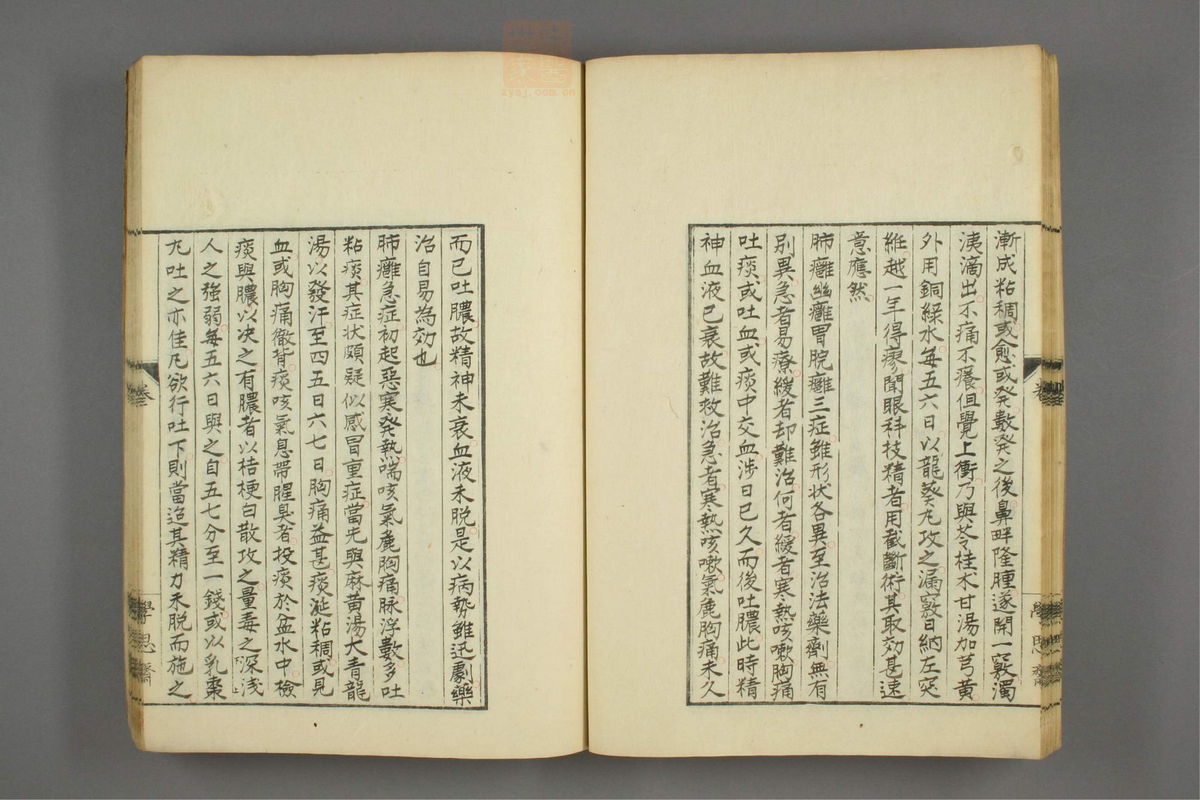 漸成粘稠或愈或發數發之後鼻畔隆腫遂開一竅濁
洟滴出不痛不癢但覺上衝乃與苓桂朮甘湯加芎黃
外用銅綠水每五六日以龍葵丸攻之漏竅日納左突
紝越一年得瘳聞眼科技精者用截斷術其取効甚速
意應然
肺癰幽癰胃脘癰三症雖形状各異至治法藥劑無有
別異急者易療緩者却難治何者緩者寒熱咳嗽胸痛
吐痰或吐血或痰中交血涉日已久而後吐膿此時精
神血液已衰故難救治急者寒熱咳嗽氣麁胸痛未久
而已吐膿故精神未衰血液未脫是以病勢雖迅劇藥
治自易為効也
肺癰急症初起惡寒發熱喘咳氣麁胸痛脉浮數多吐
粘痰其症状頗疑似感冒重症當先與麻黃湯大青龍
湯以發汗至四五日六七日胸痛益甚痰涎粘稠或見
血或胸痛徹背痰咳氣息帶腥臭者投痰於盆水中檢
痰與膿以决之有膿者以桔梗白散攻之量毒之深淺
人之強弱每五六日與之自五七分至一錢或以乳棗
丸吐之亦佳凡欲行吐下則當迨其精力未脫而施之
卷
學思齋
卷
學思齋
zysj.com.cn